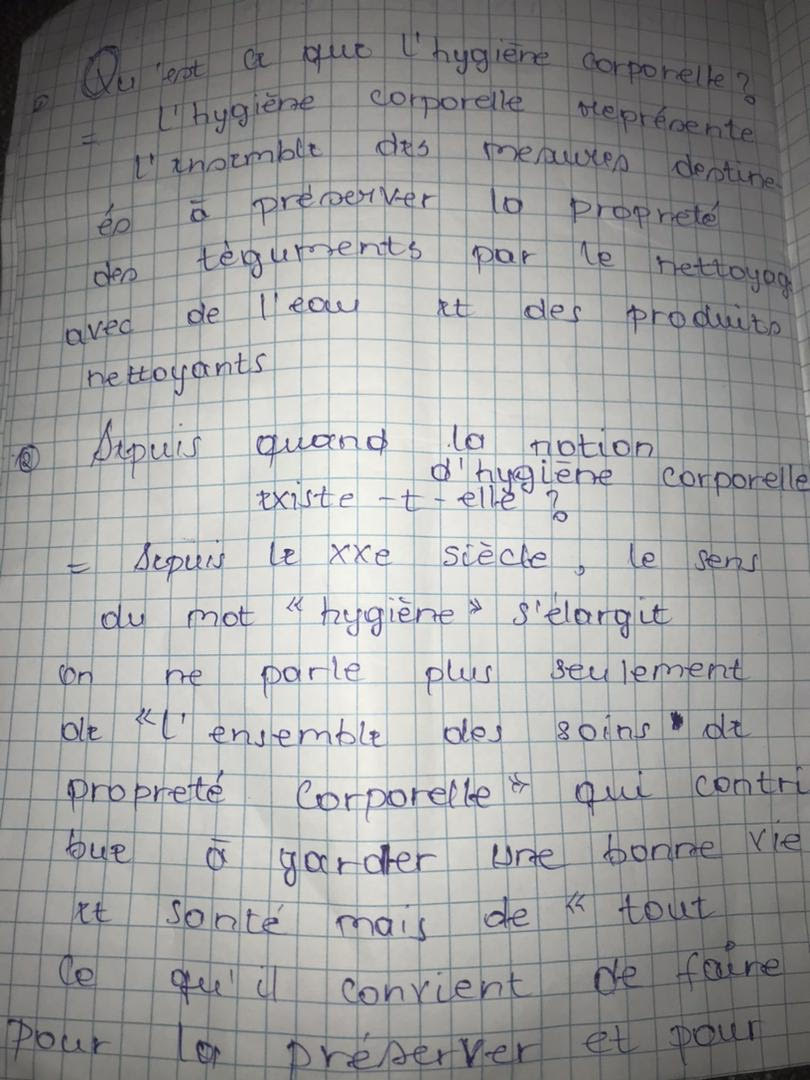 ① Qu'est ce que l'hygiène corporelle ?
= l'hygiène corporelle représente
l'ensemble des mesures destine
és à préserver la propreté
des tèguments par le nettoyag
avec de l'eau et des produits
nettoyants
② Depuis quand la notion
d'hygiène corporelle
existe -t- elle ?
= Depuis le xxe siècle, le sens
du mot « hygiène » s'élargit
on ne parle plus seulement
de « l'ensemble des soins de
propreté corporelle » qui contri
bue à garder une bonne vie
et santé mais de « tout
ce qu'il convient de faire
pour la préserver et pour